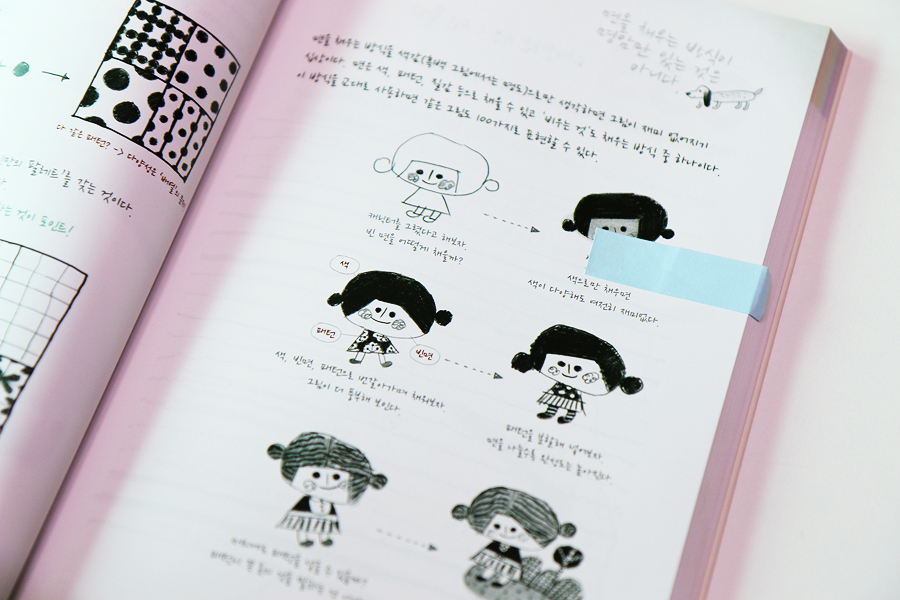 다 같은 패턴? -> 다양성은 '배열'의
팔레트'를 갖는 것이다.
것이 포인트!
면을 채우는 방식이
명암만 있는 것은
아니다
면을 채우는 방식을 색감(흑백 그림에서는 명도)으로만 생각하면 그림이 재미 없어지기
십상이다. 면은 색, 패턴, 질감 등으로 채울 수 있고 '비우는 것'도 채우는 방식 중 하나이다.
이 방식을 교대로 사용하면 같은 그림도 100가지로 표현할 수 있다.
캐릭터를 그렸다고 해보자.
빈 면을 어떻게 채울까?
색으로만 채우면
색이 다양해도 여전히 재미없다.
색
패턴
빈면
색, 빈면, 패턴으로 번갈아가며 채워보자.
그림이 더 풍부해 보인다.
패턴을 분할해 넣어보자
면을 나눌수록 완성도는 높아진다.
머리에도 패턴을 넣을 수 있을까?